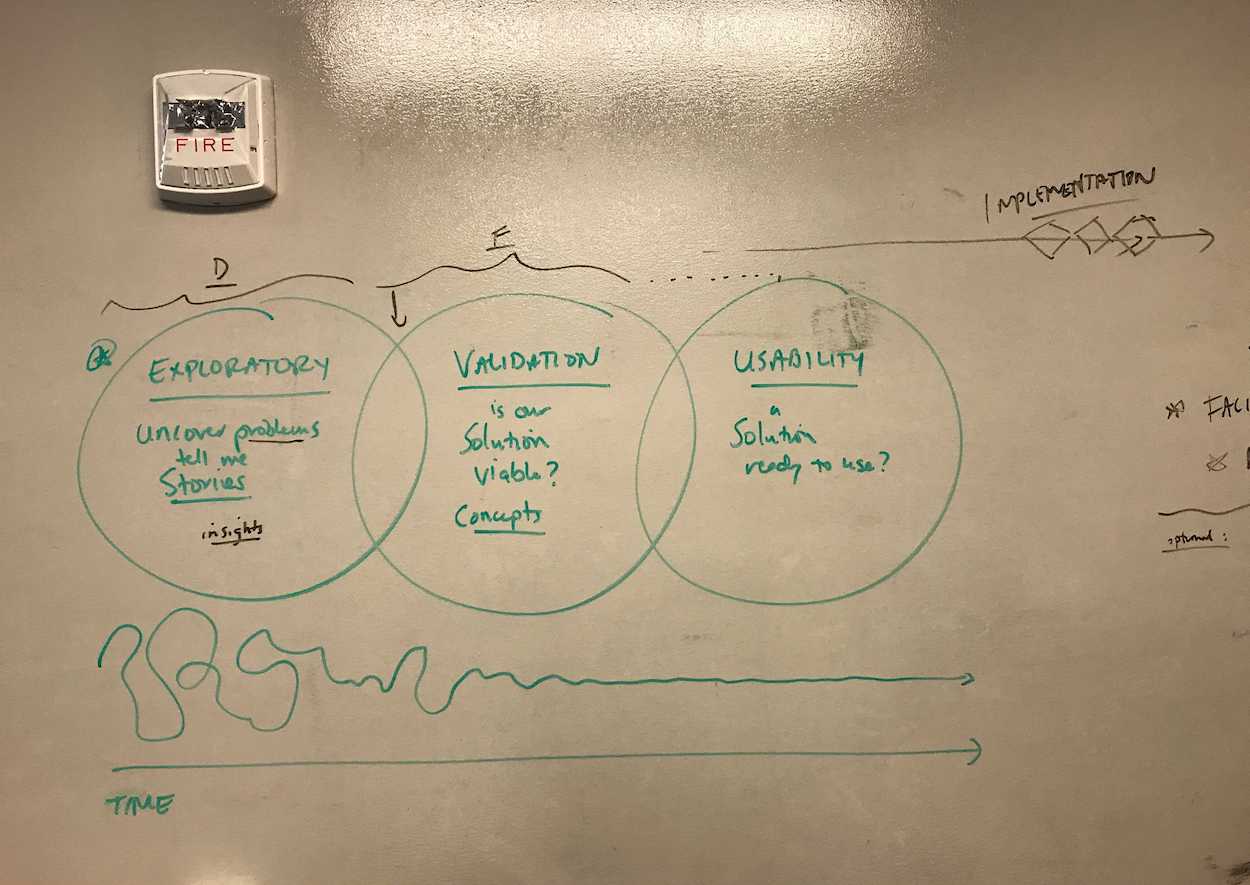 FIRE
IMPLEMENTATION
D
F
EXPLORATORY
uncover problems
tell me
Stories
insights
VALIDATION
is our
Solution
viable?
Concepts
USABILITY
a
Solution
ready to use?
optional:
TIME